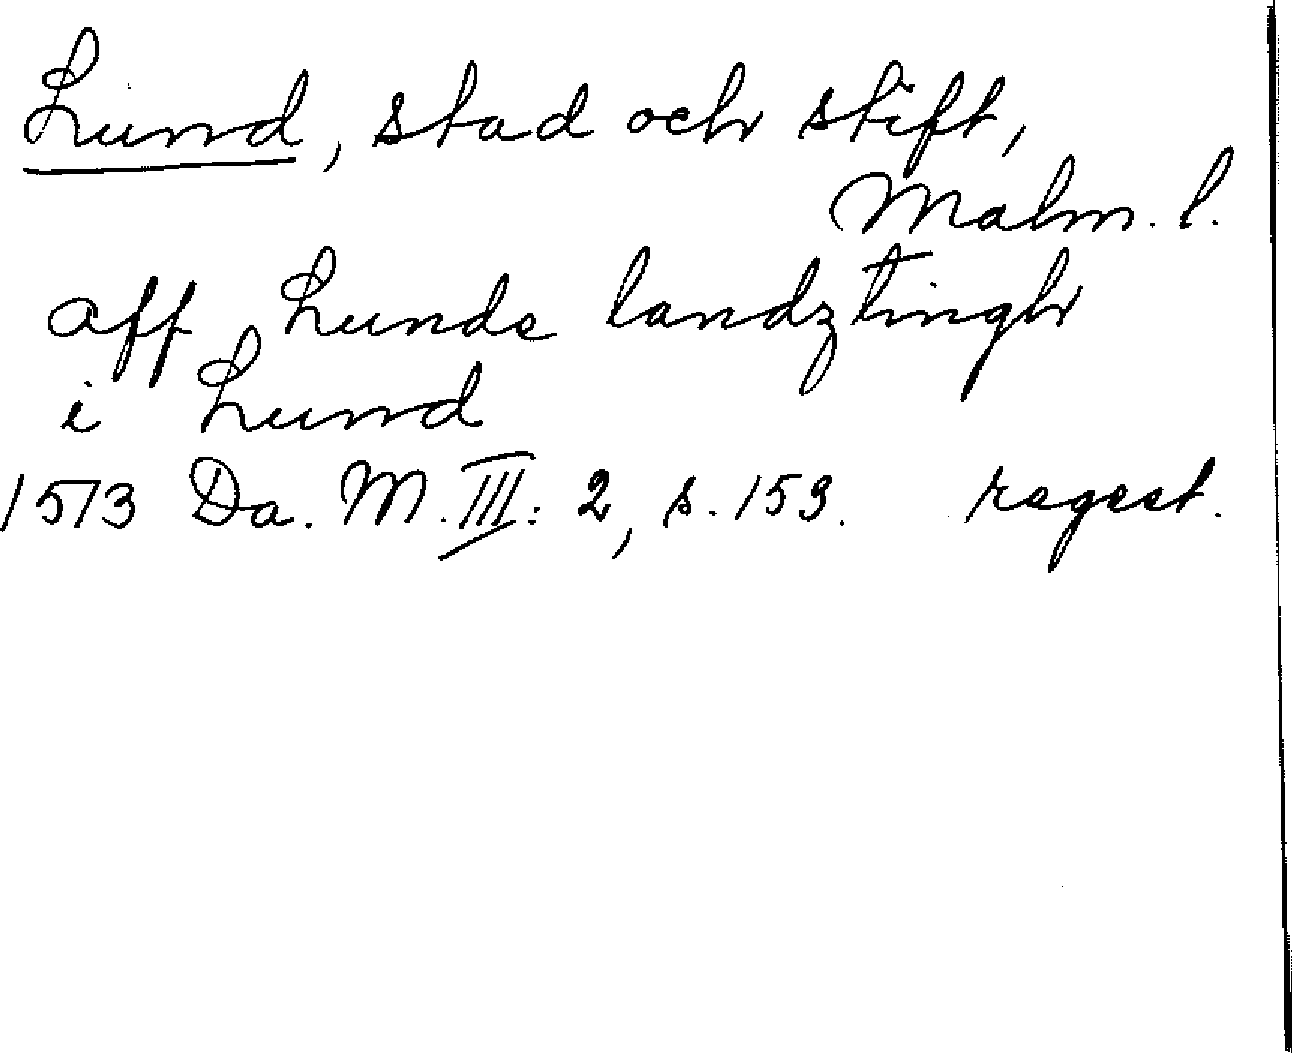 Lund, stad och stift,
Malm. l.
aff Lunde landztingh
i Lund
1573 Da. M. III: 2, s. 153. regest.